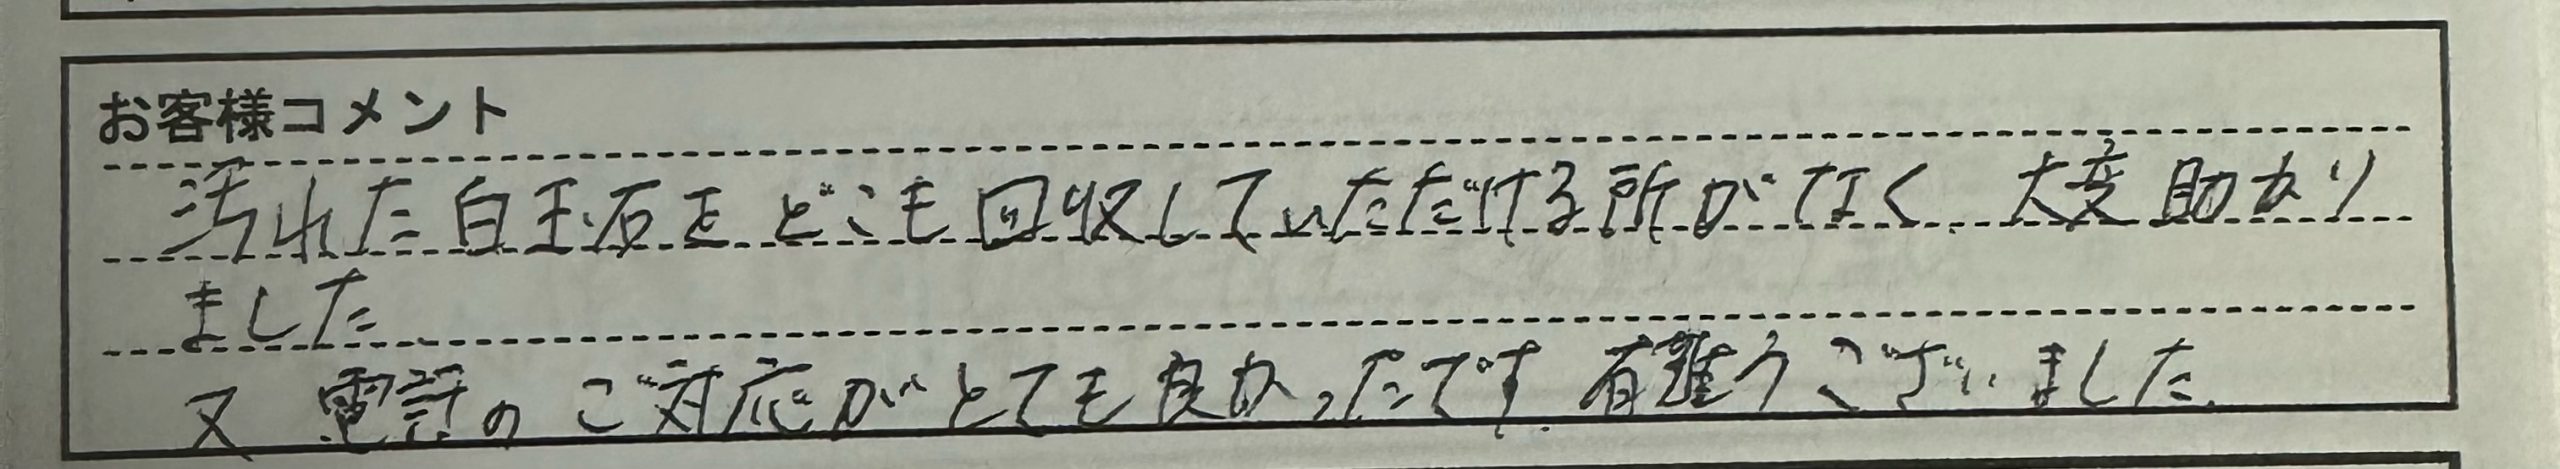 お客様コメント
汚れた白玉石をどこも回収していただける所がなく、大変助かり
ました。
又 電話のご対応がとても良かったです。有難うございました。